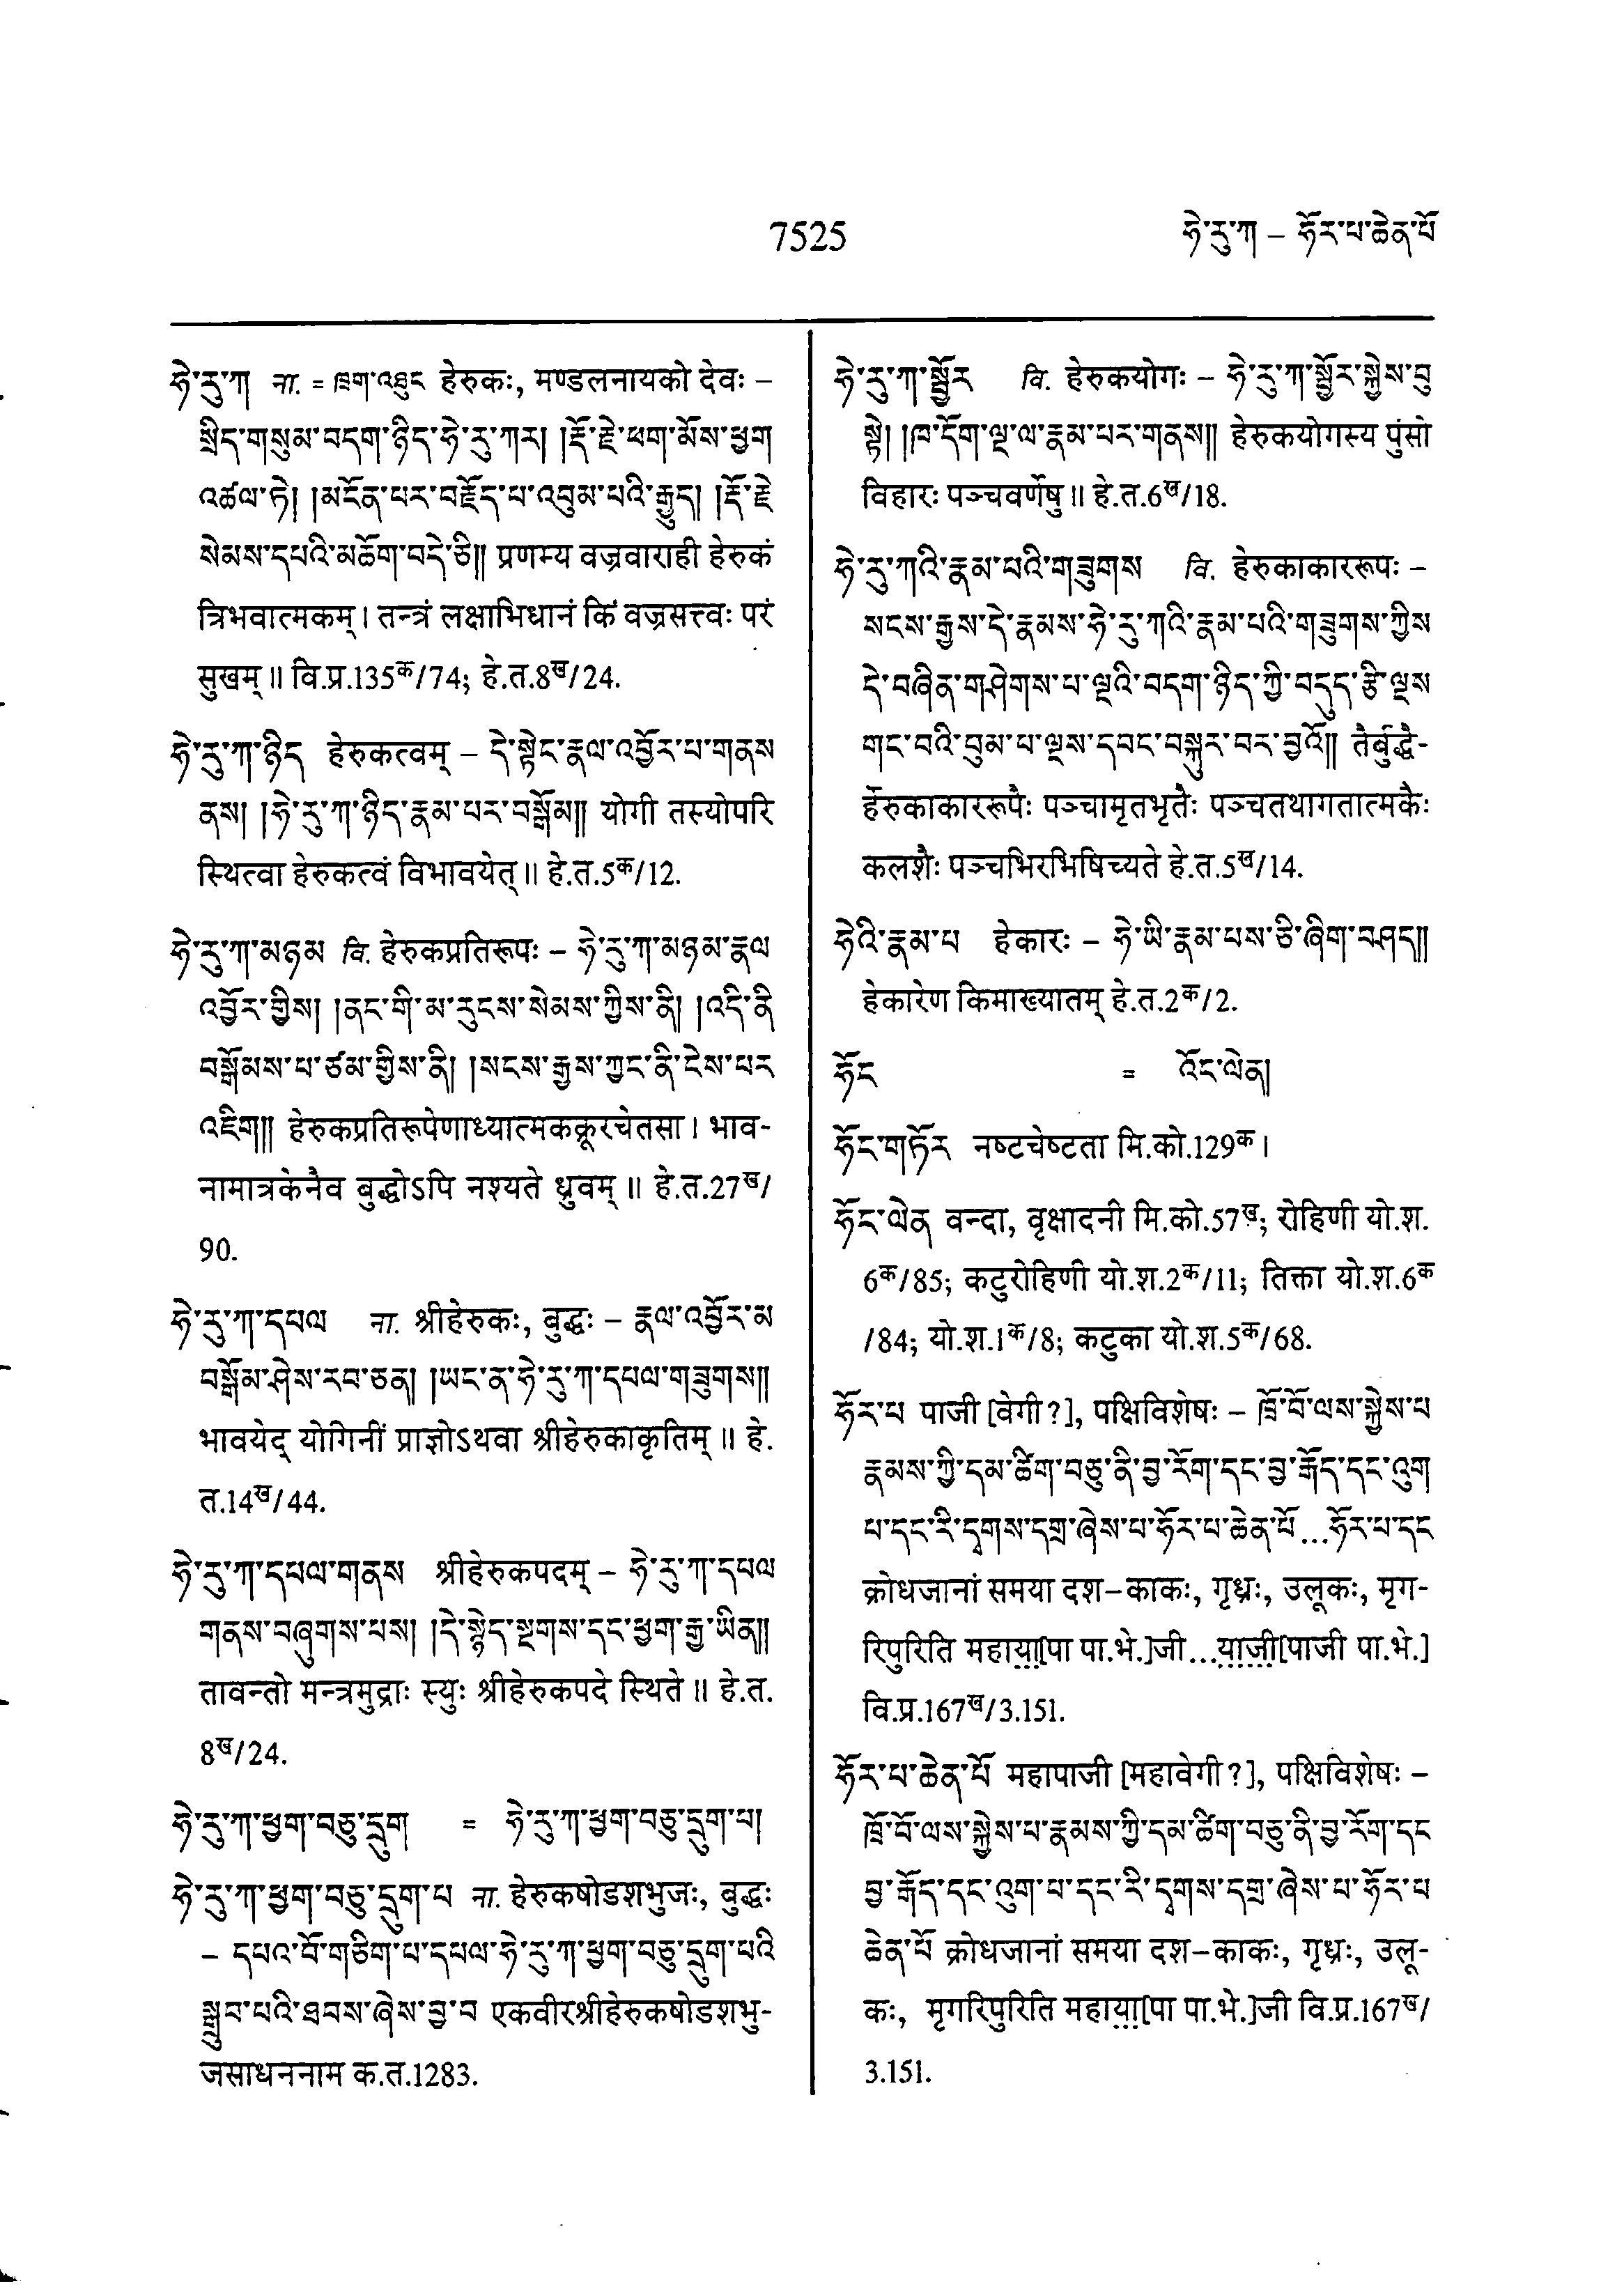 7525
ཧེ་རུ་ཀ – ཧོར་པ་ཆེན་པོ
ཧེ་རུ་ཀ ना. = ཁྲག་འཐུང हेरुकः, मण्डलनायको देवः –
སྲིད་གསུམ་བདག་ཉིད་ཧེ་རུ་ཀར། །རྡོ་རྗེ་ཕག་མོས་ཕྱག
འཚལ་ཏེ། །མངོན་པར་བརྗོད་པ་འབུམ་པའི་རྒྱུད། །རྡོ་རྗེ
སེམས་དཔའི་མཆོག་བདེ་ཅི།། प्रणम्य वज्रवाराही हेरुकं
त्रिभवात्मकम्। तन्त्रं लक्षाभिधानं किं वज्रसत्त्वः परं
सुखम्॥ वि.प्र.135क/74; हे.त.8ख/24.
ཧེ་རུ་ཀ་ཉིད हेरुकत्वम् – དེ་སྟེང་རྣལ་འབྱོར་པ་གནས
ནས། །ཧེ་རུ་ཀ་ཉིད་རྣམ་པར་བསྒོམ།། योगी तस्योपरि
स्थित्वा हेरुकत्वं विभावयेत्॥ हे.त.5क/12.
ཧེ་རུ་ཀ་མཉམ वि. हेरुकप्रतिरूपः – ཧེ་རུ་ཀ་མཉམ་རྣལ
འབྱོར་གྱིས། །ནང་གི་མ་རུངས་སེམས་ཀྱིས་ནི། །འདི་ནི
བསྒོམས་པ་ཙམ་གྱིས་ནི། །སངས་རྒྱས་ཀྱང་ནི་ངེས་པར
འཇིག།། हेरुकप्रतिरूपेणाध्यात्मकक्रूरचेतसा। भाव-
नामात्रकेनैव बुद्धोऽपि नश्यते ध्रुवम्॥ हे.त.27ख/
90.
ཧེ་རུ་ཀ་དཔལ ना. श्रीहेरुकः, बुद्धः – རྣལ་འབྱོར་མ
བསྒོམ་ཤེས་རབ་ཅན། །ཡང་ན་ཧེ་རུ་ཀ་དཔལ་གཟུགས།།
भावयेद् योगिनीं प्राज्ञोऽथवा श्रीहेरुकाकृतिम्॥ हे.
त.14ख/44.
ཧེ་རུ་ཀ་དཔལ་གནས श्रीहेरुकपदम् – ཧེ་རུ་ཀ་དཔལ
གནས་བཞུགས་པས། །དེ་སྙེད་སྔགས་དང་ཕྱག་རྒྱ་ཡིན།།
तावन्तो मन्त्रमुद्राः स्युः श्रीहेरुकपदे स्थिते॥ हे.त.
8ख/24.
ཧེ་རུ་ཀ་ཕྱག་བཅུ་དྲུག = ཧེ་རུ་ཀ་ཕྱག་བཅུ་དྲུག་པ།
ཧེ་རུ་ཀ་ཕྱག་བཅུ་དྲུག་པ ना. हेरुकषोडशभुजः, बुद्धः
– དཔའ་བོ་གཅིག་པ་དཔལ་ཧེ་རུ་ཀ་ཕྱག་བཅུ་དྲུག་པའི
སྒྲུབ་པའི་ཐབས་ཞེས་བྱ་བ एकवीरश्रीहेरुकषोडशभु-
जसाधननाम क.त.1283.
ཧེ་རུ་ཀ་སྦྱོར वि. हेरुकयोगः – ཧེ་རུ་ཀ་སྦྱོར་སྐྱེས་བུ
སྟེ། །ཁ་དོག་ལྔ་ལ་རྣམ་པར་གནས།། हेरुकयोगस्य पुंसो
विहारः पञ्चवर्णेषु॥ हे.त.6ख/18.
ཧེ་རུ་ཀའི་རྣམ་པའི་གཟུགས वि. हेरुकाकाररूपः –
སངས་རྒྱས་དེ་རྣམས་ཧེ་རུ་ཀའི་རྣམ་པའི་གཟུགས་ཀྱིས
དེ་བཞིན་གཤེགས་པ་ལྔའི་བདག་ཉིད་ཀྱི་བདུད་རྩི་ལྔས
གང་བའི་བུམ་པ་ལྔས་དབང་བསྐུར་བར་བྱའོ།། तैर्बुद्धै-
र्हेरुकाकाररूपैः पञ्चामृतभृतैः पञ्चतथागतात्मकैः
कलशैः पञ्चभिरभिषिच्यते हे.त.5ख/14.
ཧེའི་རྣམ་པ हेकारः – ཧེ་ཡི་རྣམ་པས་ཅི་ཞིག་བཤད།།
हेकारेण किमाख्यातम् हे.त.2क/2.
ཧོང = འོང་ལེན།
ཧོང་གཏོར नष्टचेष्टता मि.को.129क।
ཧོང་ལེན वन्दा, वृक्षादनी मि.को.57ख; रोहिणी यो.श.
6क/85; कटुरोहिणी यो.श.2क/11; तिक्ता यो.श.6क
/84; यो.श.1क/8; कटुका यो.श.5क/68.
ཧོར་པ पाजी [वेगी?], पक्षिविशेषः – ཁྲོ་བོ་ལས་སྐྱེས་པ
རྣམས་ཀྱི་དམ་ཚིག་བཅུ་ནི་བྱ་རོག་དང་བྱ་རྒོད་དང་འུག
པ་དང་རི་དྭགས་དགྲ་ཞེས་པ་ཧོར་པ་ཆེན་པོ...ཧོར་པ་དང
क्रोधजानां समया दश–काकः, गृध्रः, उलूकः, मृग-
रिपुरिति महाया[पा पा.भे.]जी...याजी[पाजी पा.भे.]
वि.प्र.167ख/3.151.
ཧོར་པ་ཆེན་པོ महापाजी [महावेगी?], पक्षिविशेषः –
ཁྲོ་བོ་ལས་སྐྱེས་པ་རྣམས་ཀྱི་དམ་ཚིག་བཅུ་ནི་བྱ་རོག་དང
བྱ་རྒོད་དང་འུག་པ་དང་རི་དྭགས་དགྲ་ཞེས་པ་ཧོར་པ
ཆེན་པོ क्रोधजानां समया दश–काकः, गृध्रः, उलू-
कः, मृगरिपुरिति महाया[पा पा.भे.]जी वि.प्र.167ख/
3.151.